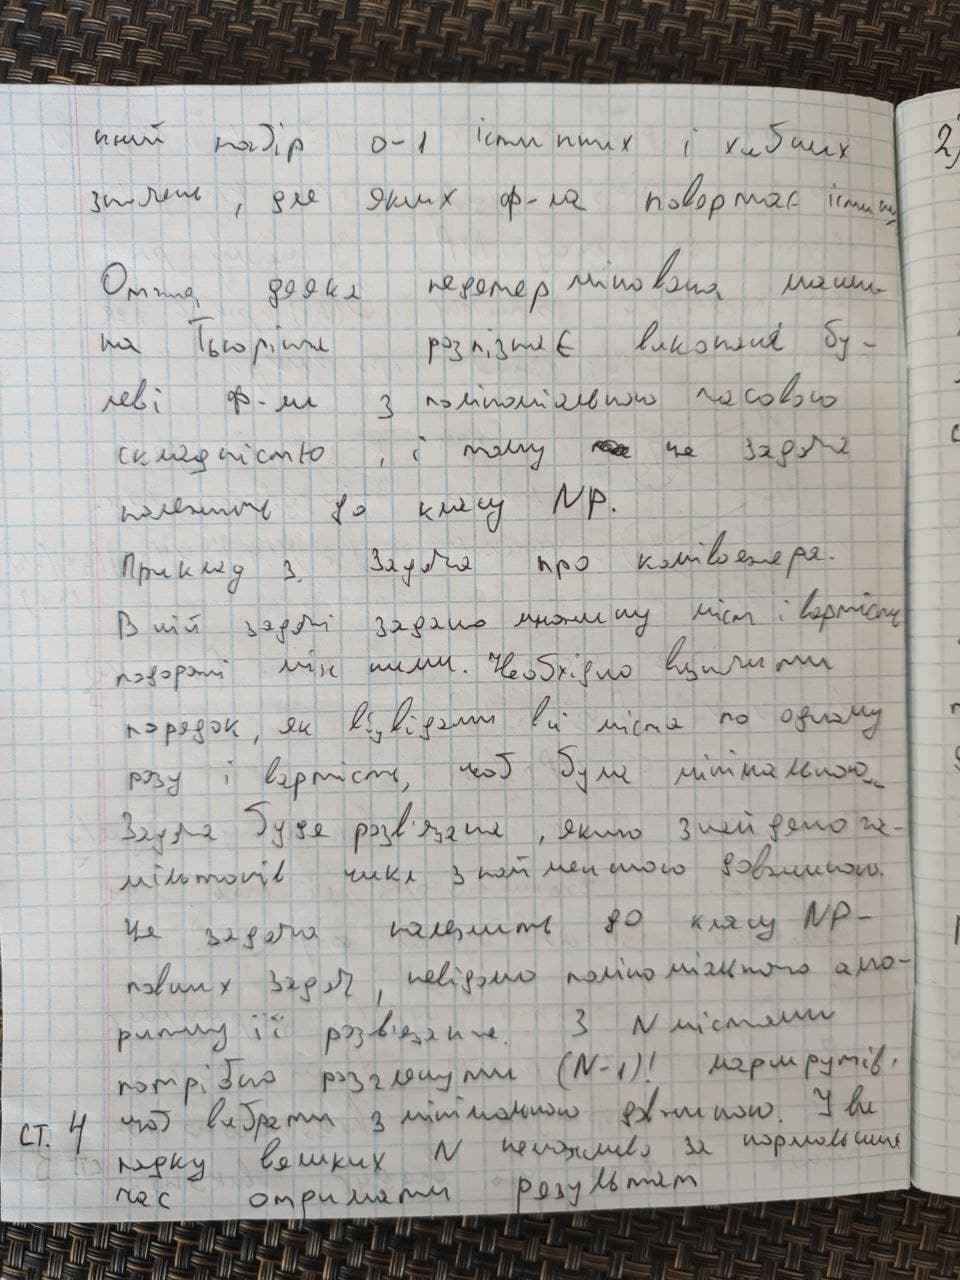 ний набір 0-1 істинних і хибних
значень, для яких ф-ла повертає істину
Отже, деяка недетермінована маши-
на Тьюрінга розпізнає виконані бу-
леві ф-ли з поліноміальною часовою
складністю, і тому ця задача
належить до класу NP.
Приклад 3. Задача про комівояжера.
В цій задачі задано множину міст і вартість
подорожі між ними. Необхідно визначити
порядок, як відвідати всі міста по одному
разу і вартість, щоб була мінімальною.
Задача буде розв'язана, якщо знайдено га-
мільтонів цикл з найменшою довжиною.
Ця задача належить до класу NP-
повних задач, невідомо поліноміального алго-
ритму її розв'язання. З N містами
потрібно розглянути (N-1)! маршрутів,
щоб вибрати з мінімальною довжиною. У ви
ст. 4
падку великих N неможливо за нормальний
час отримати результат
2)